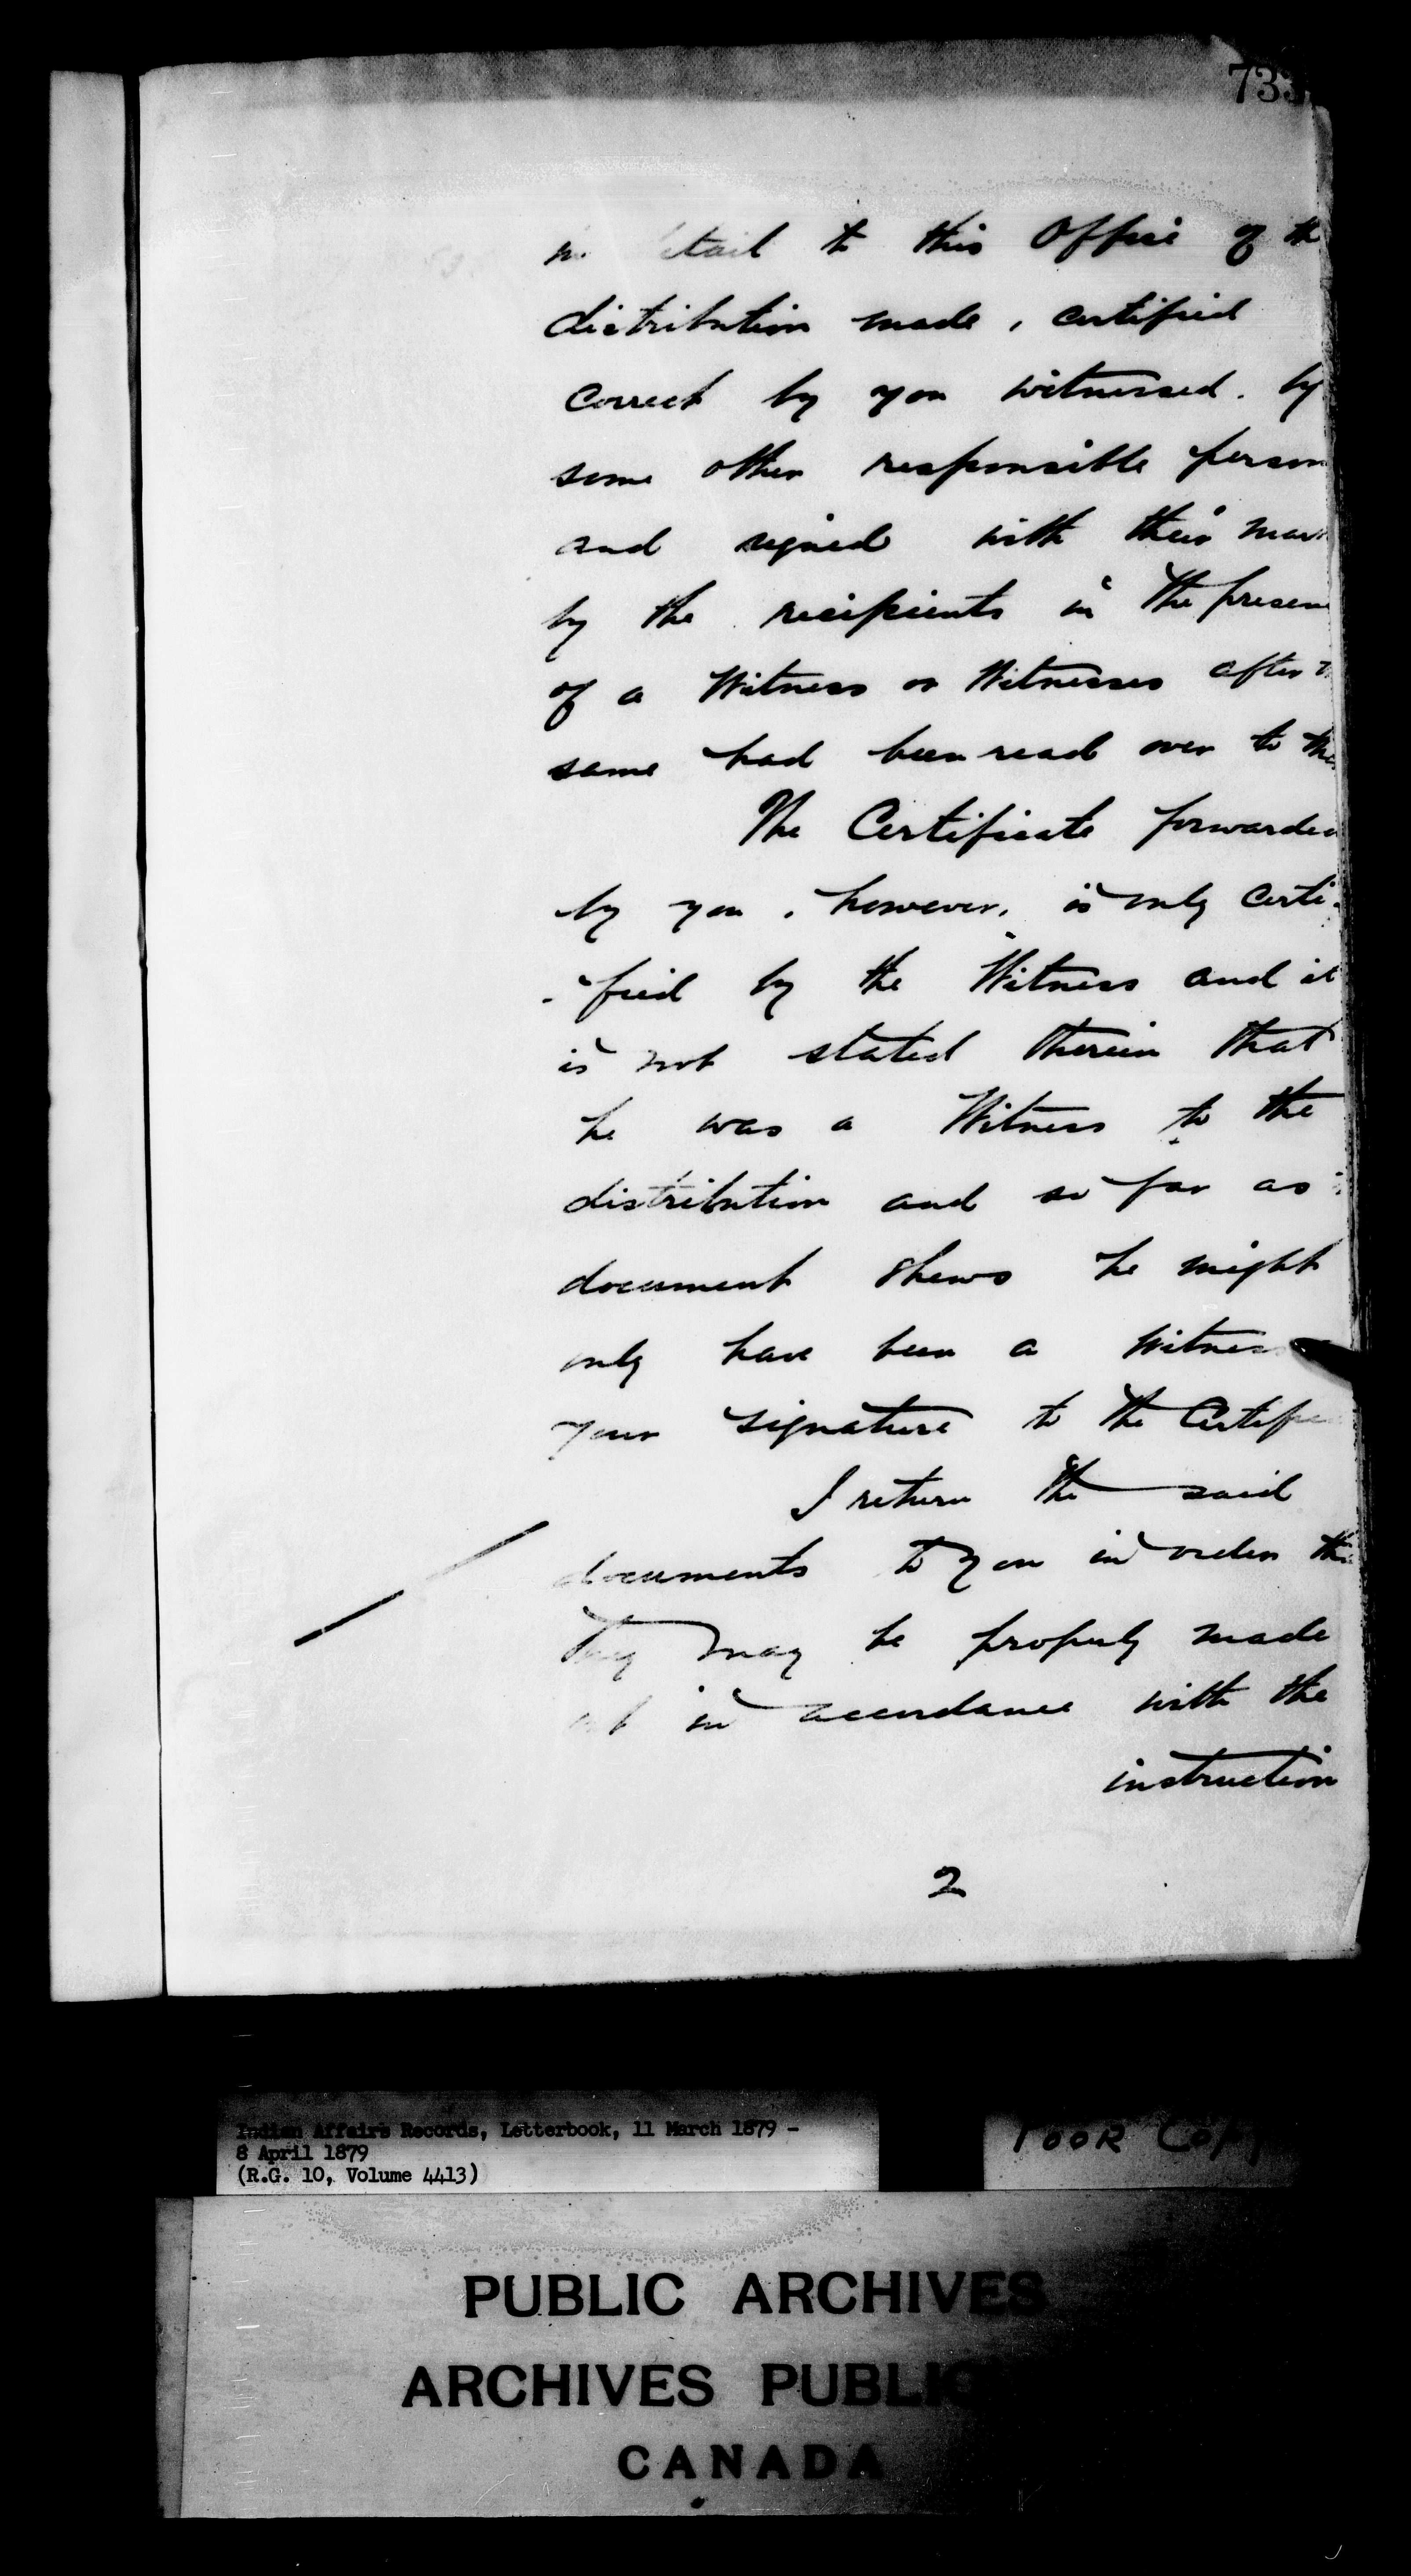 733
to this Office of th
distribution made, certified
correct by you witnessed. by
some other responsible person
and signed with their mar
by the recipients in the presen
of a Witness or Witnesses after
same had been read over to the
The Certificate forwarded
by you, however, is only certi-
-fied by the Witness and it
is not stated therein that
he was a Witness to the
distribution and so far as
document shews he might
only have been a Witness
your signature to the Certific
I return the said
documents to you in order tha
They may be properly made
in accordance with the
instruction
2
Indian Affairs Records, Letterbook, 11 March 1879 -
8 April 1879
(R.G. 10, Volume 4413)
POOR COPY
PUBLIC ARCHIVES
ARCHIVES PUBLIC
CANADA